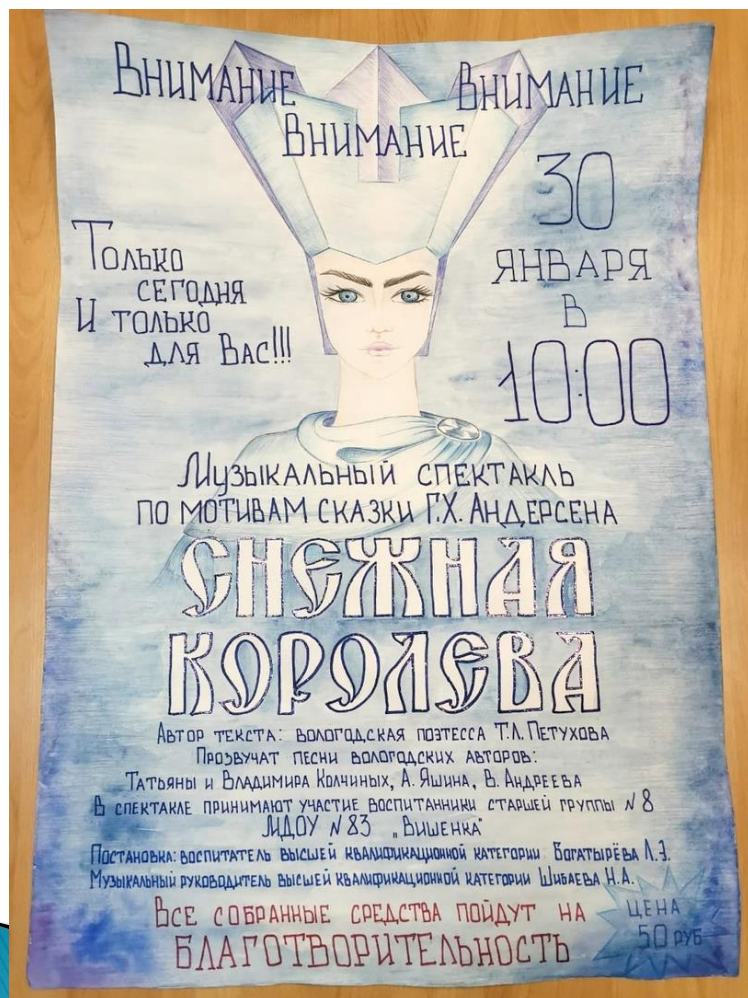 Внимание
Внимание
Внимание
Только
сегодня
и только
для Вас!!!
30
января
в
10:00
Музыкальный спектакль
по мотивам сказки Г.Х. Андерсена
СНЕЖНАЯ
КОРОЛЕВА
Автор текста: вологодская поэтесса Т.Л. Петухова
Прозвучат песни вологодских авторов:
Татьяны и Владимира Колчиных, А. Яшина, В. Андреева
В спектакле принимают участие воспитанники старшей группы №8
МДОУ №83 „Вишенка"
Постановка: воспитатель высшей квалификационной категории Богатырёва Л.Э.
Музыкальный руководитель высшей квалификационной категории Шибаева Н.А.
Все собранные средства пойдут на
БЛАГОТВОРИТЕЛЬНОСТЬ
Цена
50 руб